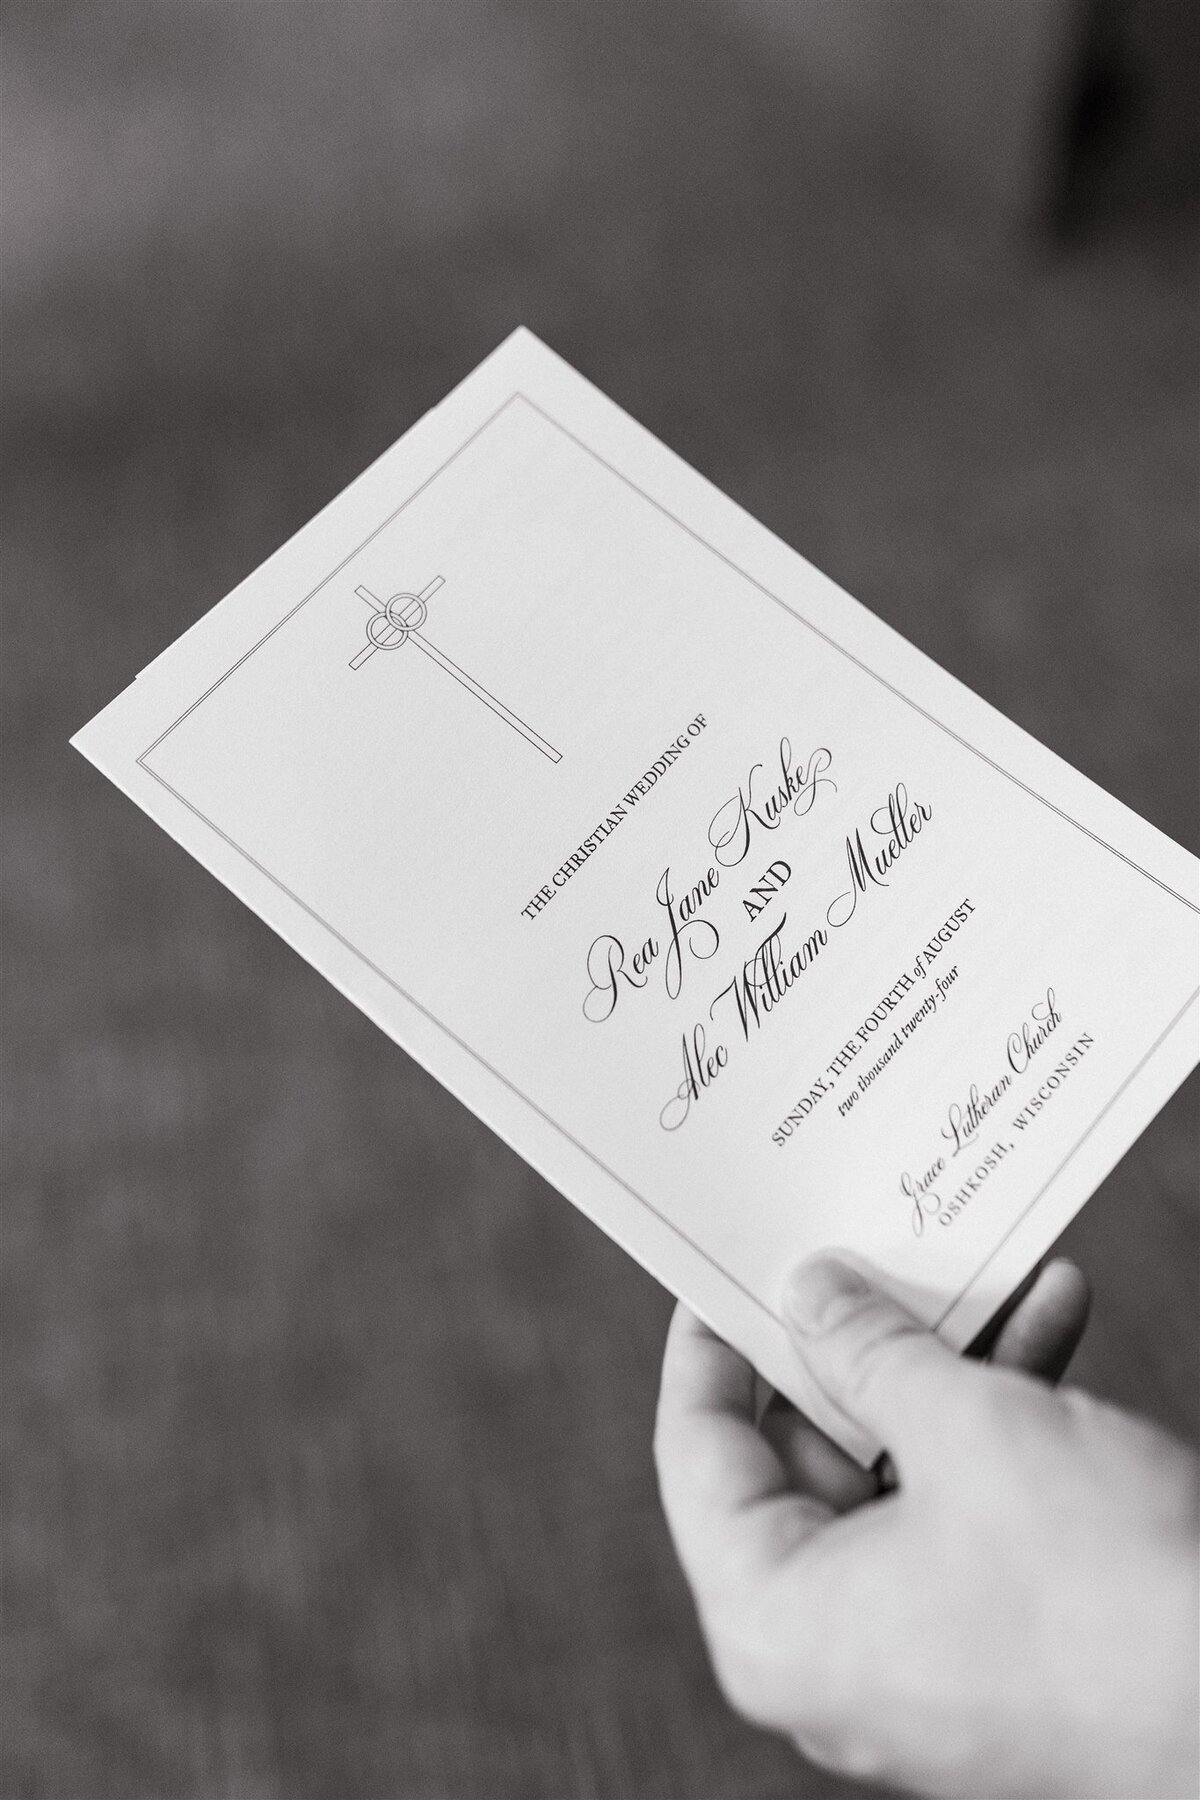 THE CHRISTIAN WEDDING OF
Rea Jane Kuske
AND
Alec William Mueller
SUNDAY, THE FOURTH of AUGUST
two thousand twenty-four
Grace Lutheran Church
OSHKOSH, WISCONSIN